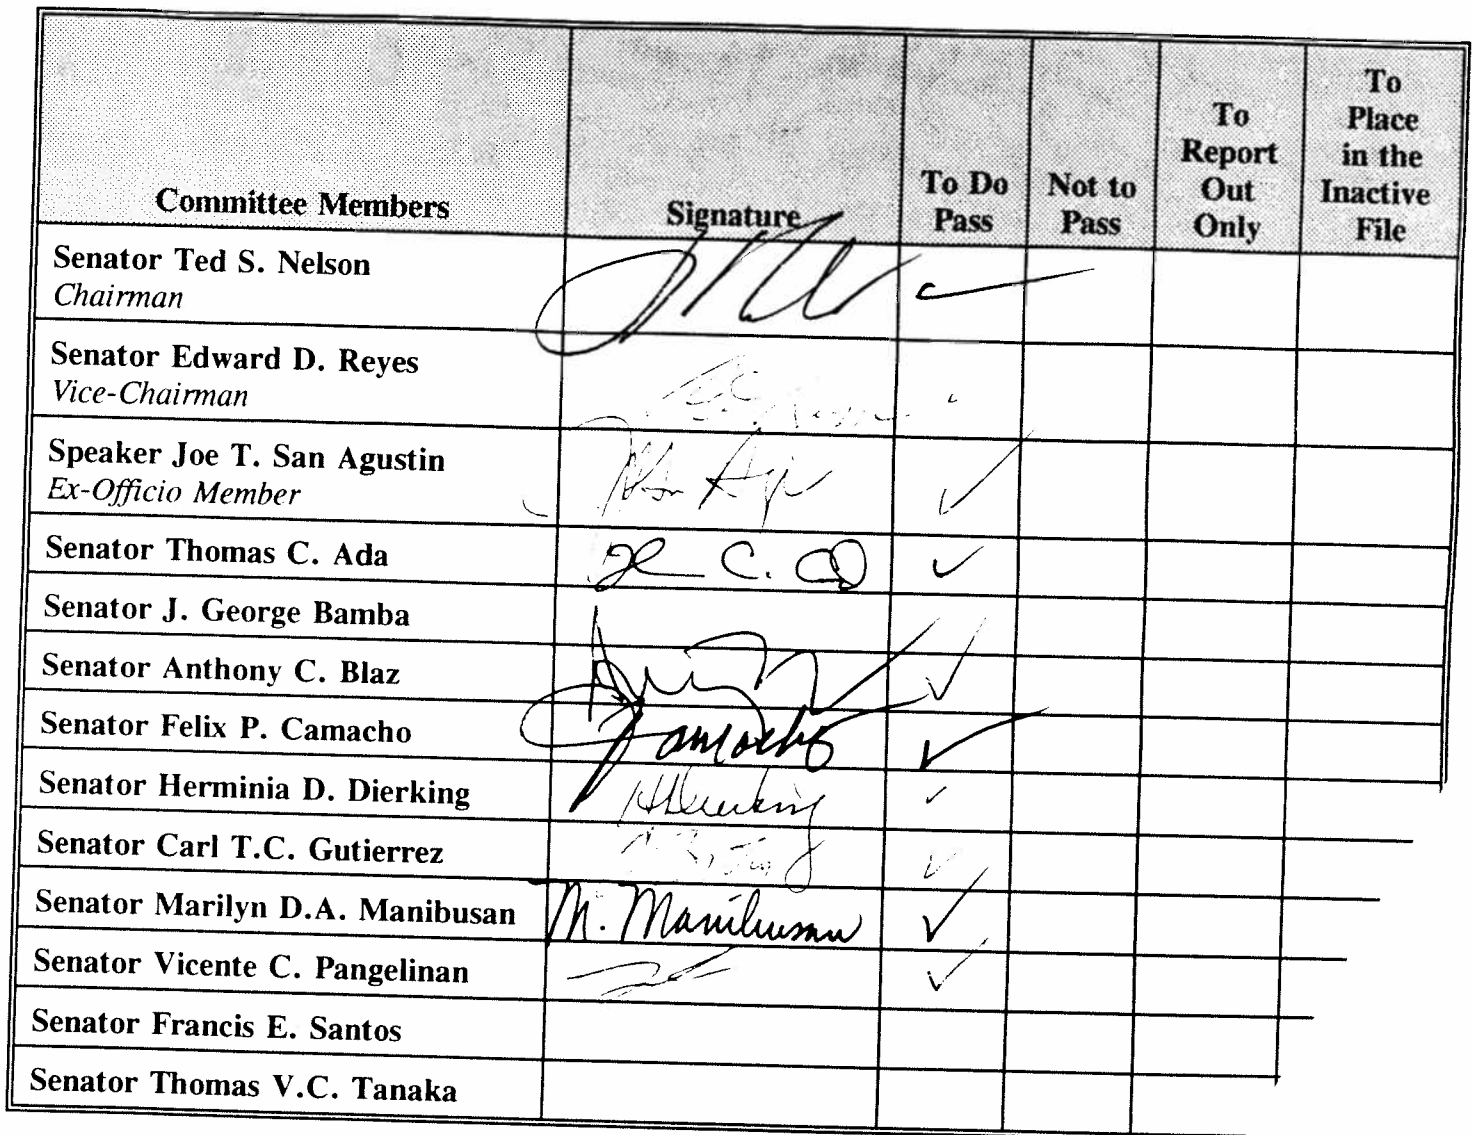 Committee Members Signature To Do Pass Not to Pass To Report Out Only To Place in the Inactive File
Senator Ted S. Nelson
Chairman
Senator Edward D. Reyes
Vice-Chairman
Speaker Joe T. San Agustin
Ex-Officio Member
Senator Thomas C. Ada ✓
Senator J. George Bamba
Senator Anthony C. Blaz ✓
Senator Felix P. Camacho Camacho ✓
Senator Herminia D. Dierking HDierking ✓
Senator Carl T.C. Gutierrez ✓
Senator Marilyn D.A. Manibusan M. Manibusan ✓
Senator Vicente C. Pangelinan ✓
Senator Francis E. Santos
Senator Thomas V.C. Tanaka